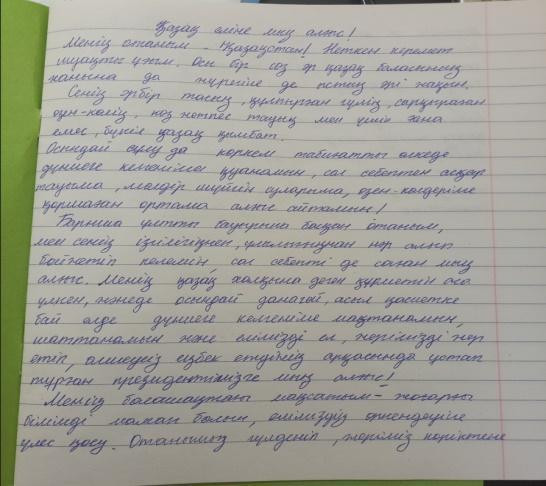 Қазақ еліне мың алғыс!
Менің отаным - Қазақстан! Неткен керемет
мұқтты ұғым. Осы бір сөз әр қазақ баласының
қанына да жүрегіне де ыстық әрі жақын.
Сенің әрбір тасың, құлпырған гүлің, сарқыраған
өзен-көлің, көз жетпес тауың мен үшін ғана
емес, бүкіл қазақ қымбат.
Осындай сұлу да көркем табиғатты өлкеде
дүниеге келгеніме қуанамын, сол себептен асқар
тауыма, мөлдір тұщы суларыма, өзен-көлдеріме
қоршаған ортама алғыс айтамын!
Барлық ұлтты бауырына басқан Отаным,
мен сенің ізгілігіңнен, ұлылығыңнан нәр алып
бойжетіп келемін сол себепті де саған мың
алғыс. Менің қазақ халқына деген құрметім өте
үлкен, және осындай данагөй, асыл қасиетке
бай елде дүниеге келгеніме мақтанамын,
шаттанамын және елімізді ел, жерімізді жер
етіп, еңбек етудің арқасында ұстап
тұрған президентімізге мың алғыс!
Менің болашақтағы мақсатым - жоғарғы
білімді маман болып, еліміздің өркендеуіне
үлес қосу. Отанымыз гүлденіп, жеріміз көріктене